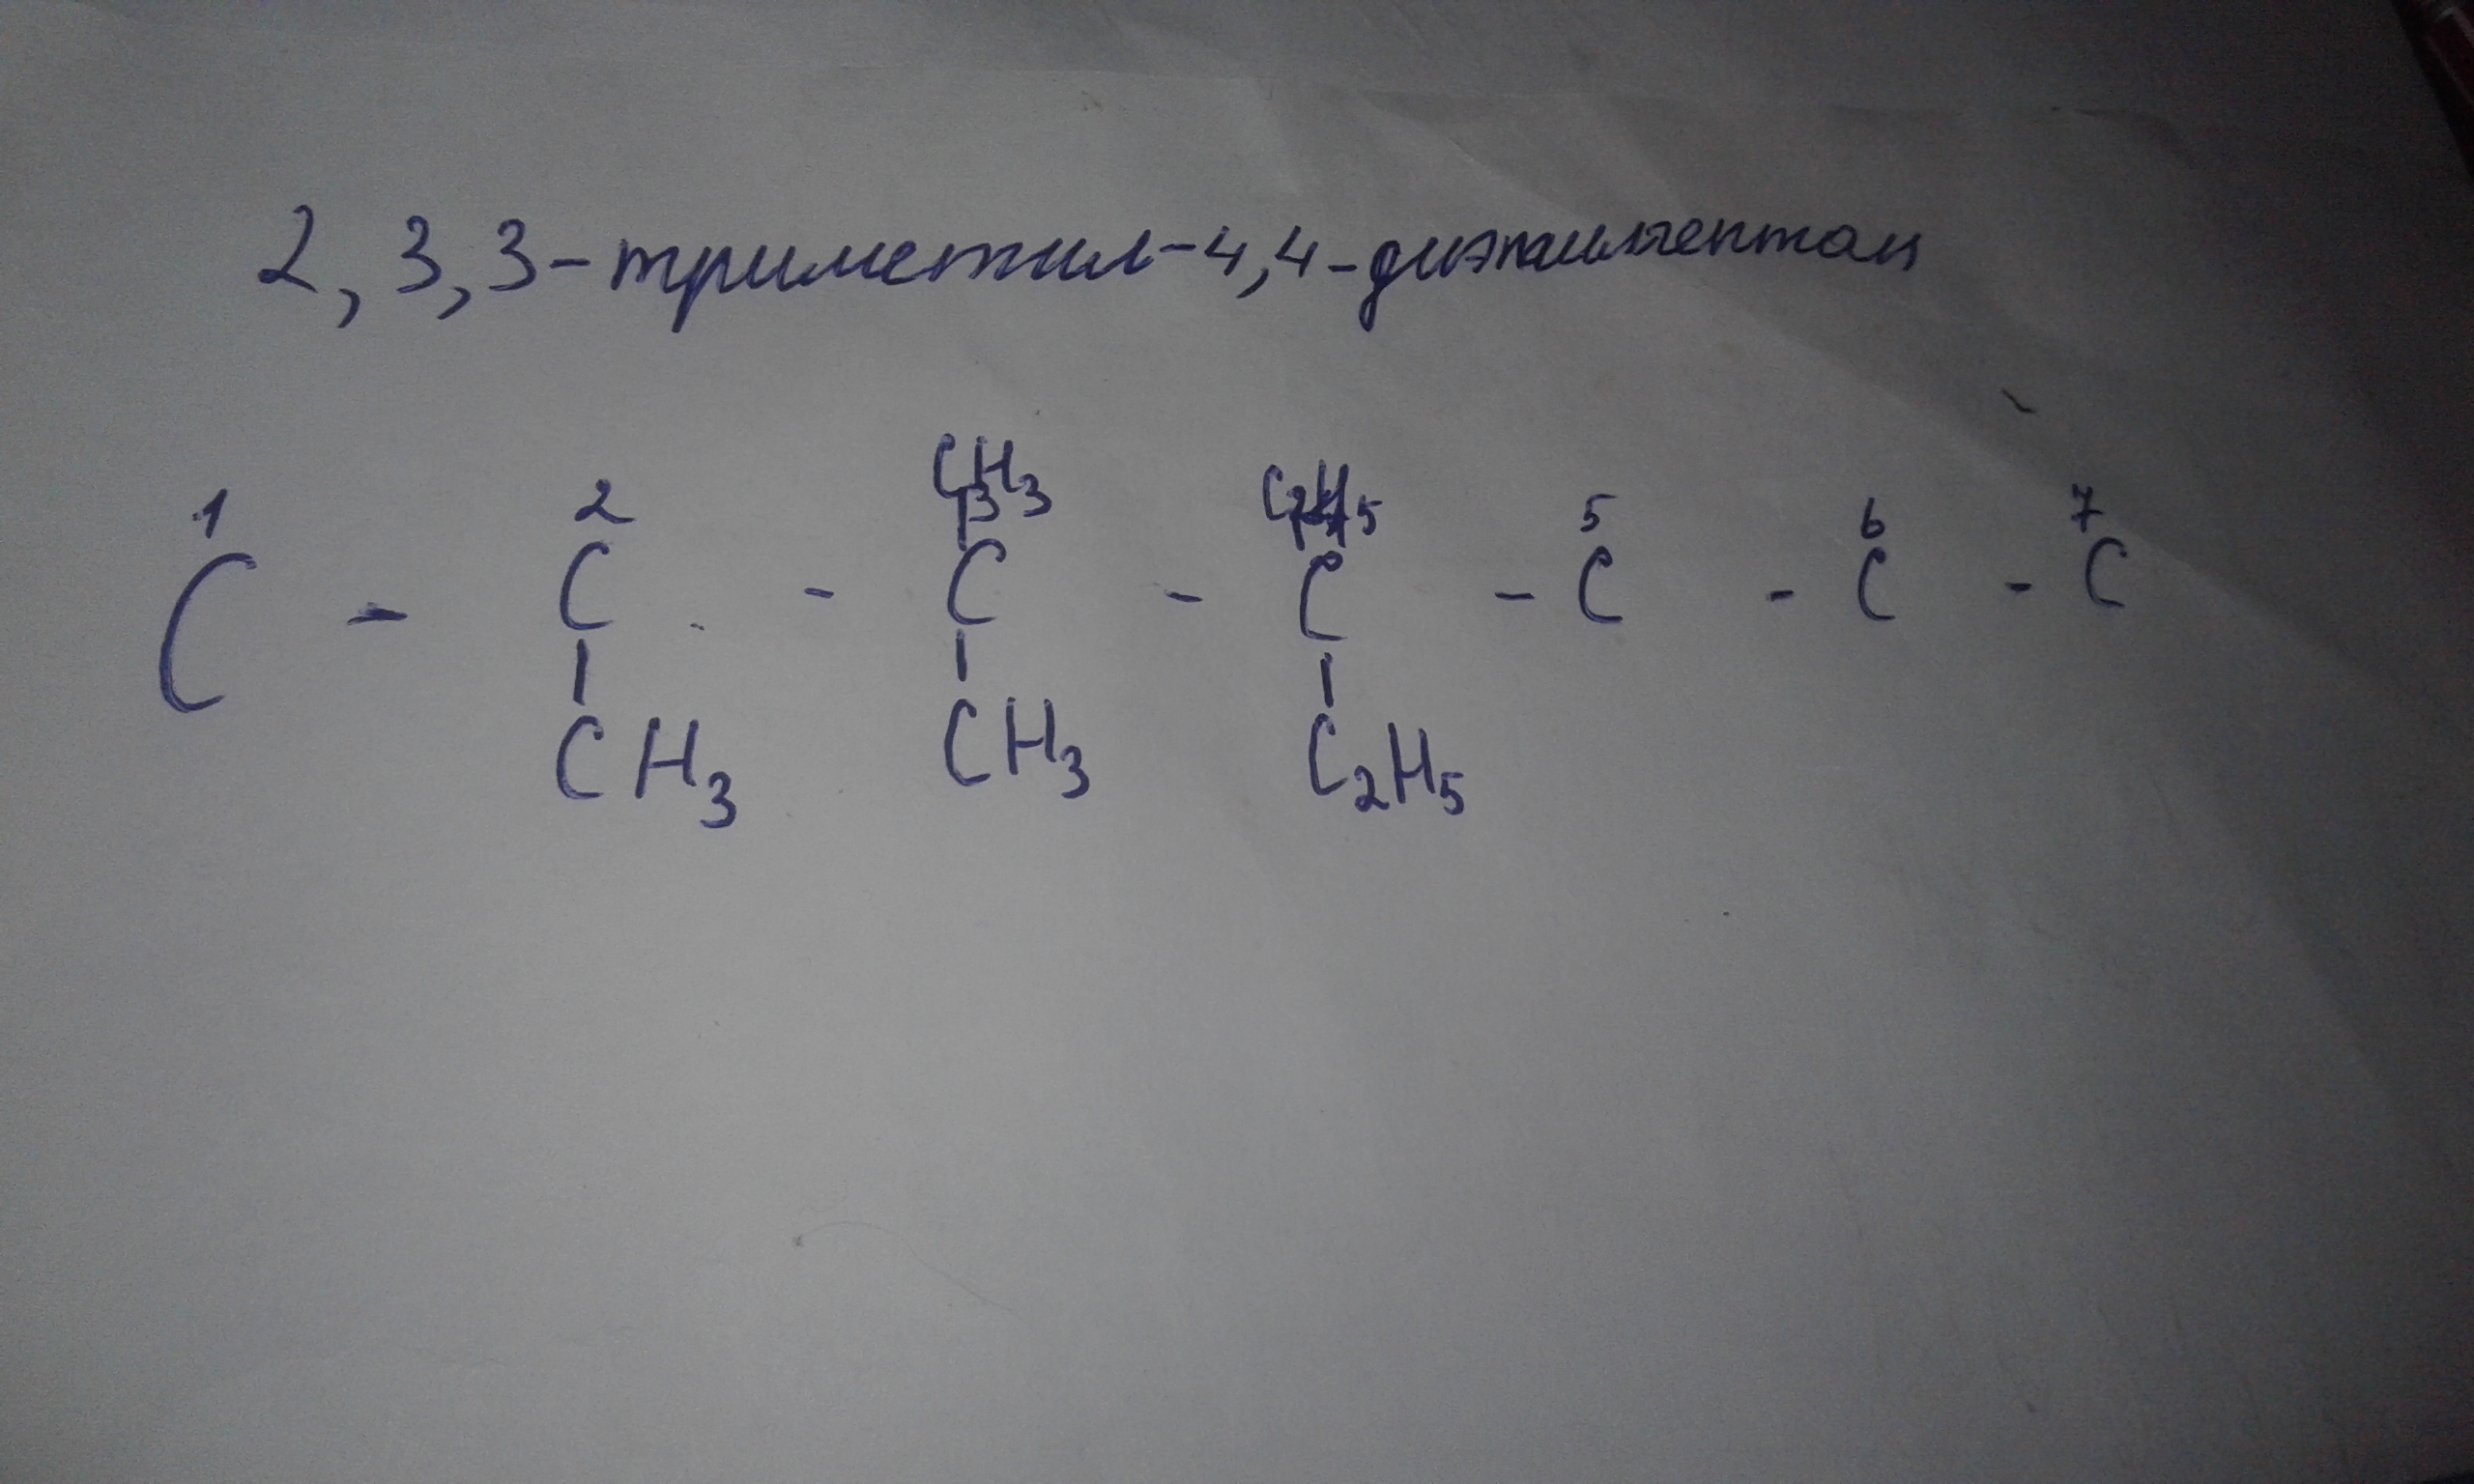 2, 3, 3 - триметил - 4, 4 - диэтилгептан
CH3 C2H5
1 2 3 4 5 6 7
C - C - C - C - C - C - C
CH3 CH3 C2H5